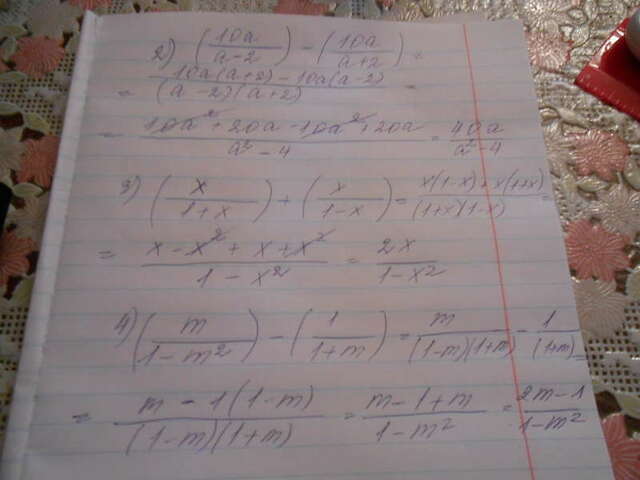 2) (10a/(a-2)) - (10a/(a+2)) =
= (10a(a+2) - 10a(a-2))/((a-2)(a+2)) =
= (10a² + 20a - 10a² + 20a)/(a² - 4) = 40a/(a² - 4)
3) (x/(1+x)) + (x/(1-x)) = (x(1-x) + x(1+x))/((1+x)(1-x)) =
= (x - x² + x + x²)/(1 - x²) = 2x/(1-x²)
4) (m/(1-m²)) - (1/(1+m)) = m/((1-m)(1+m)) - 1/(1+m) =
= (m - 1(1-m))/((1-m)(1+m)) = (m-1+m)/(1-m²) = (2m-1)/(1-m²)